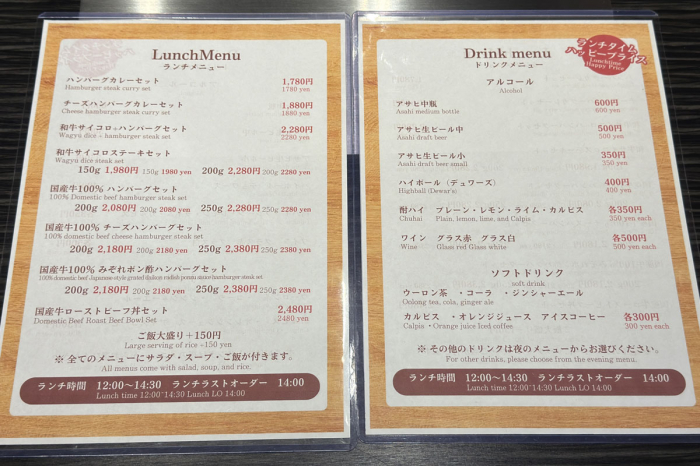 LunchMenu
ランチメニュー
ハンバーグカレーセット 1,780円
Hamburger steak curry set 1780 yen
チーズハンバーグカレーセット 1,880円
Cheese hamburger steak curry set 1880 yen
和牛サイコロ+ハンバーグセット 2,280円
Wagyu dice + hamburger steak set 2280 yen
和牛サイコロステーキセット
Wagyu dice steak set
150g 1,980円 150g 1980 yen 200g 2,280円 200g 2280 yen
国産牛100% ハンバーグセット
100% Domestic beef hamburger steak set
200g 2,080円 200g 2080 yen 250g 2,280円 250g 2280 yen
国産牛100% チーズハンバーグセット
100% domestic beef cheese hamburger steak set
200g 2,180円 200g 2180 yen 250g 2,380円 250g 2380 yen
国産牛100% みぞれポン酢ハンバーグセット
100% domestic beef Japanese-style grated daikon radish ponzu sauce hamburger steak set
200g 2,180円 200g 2180 yen 250g 2,380円 250g 2380 yen
国産牛ローストビーフ丼セット 2,480円
Domestic Beef Roast Beef Bowl Set 2480 yen
ご飯大盛り+150円
Large serving of rice +150 yen
※ 全てのメニューにサラダ・スープ・ご飯が付きます。
All menus come with salad, soup, and rice.
ランチ時間 12:00～14:30 ランチラストオーダー 14:00
Lunch time 12:00~14:30 Lunch LO 14:00
Drink menu
ドリンクメニュー
ランチタイム
ハッピープライス
Lunchtime
Happy Price
アルコール
Alcohol
アサヒ中瓶 600円
Asahi medium bottle 600 yen
アサヒ生ビール中 500円
Asahi draft beer 500 yen
アサヒ生ビール小 350円
Asahi draft beer 350 yen
ハイボール（デュワーズ） 400円
Highball (Dewar's) 400 yen
酎ハイ プレーン・レモン・ライム・カルピス 各350円
Chuhai Plain, lemon, lime, and Calpis 350 yen each
ワイン グラス赤 グラス白 各500円
Wine Glass red Glass white 500 yen each
ソフトドリンク
soft drink
ウーロン茶 ・コーラ ・ジンシャーエール
Oolong tea, cola, ginger ale
カルピス ・オレンジジュース アイスコーヒー 各300円
Calpis ・Orange juice Iced coffee 300 yen each
※ その他のドリンクは夜のメニューからお選びください。
For other drinks, please choose from the evening menu.
ランチ時間 12:00～14:30 ランチラストオーダー 14:00
Lunch time 12:00~14:30 Lunch LO 14:00